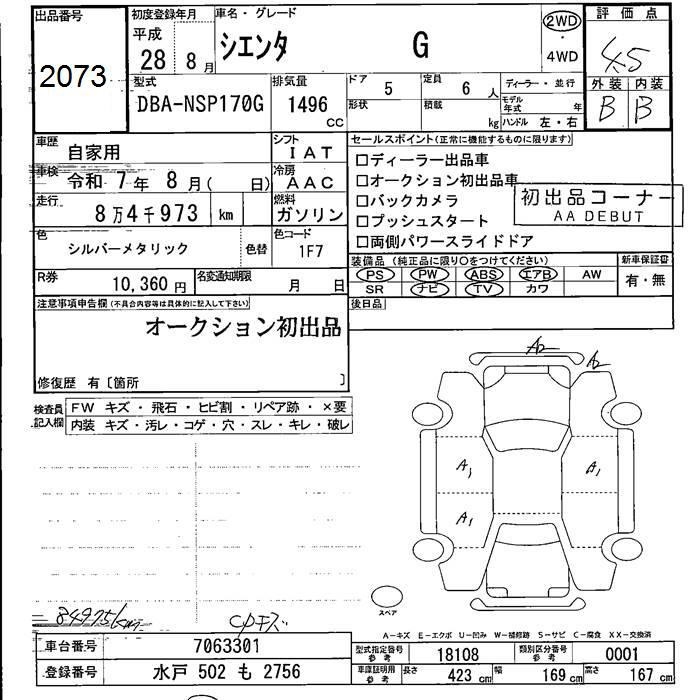 出品番号
2073
初度登録年月
平成
28 8月
車名・グレード
シエンタ G
2WD
・
4WD
評価点
4.5
外装 内装
B B
型式
DBA-NSP170G
排気量
1496
CC
ドア 5
定員 6 人
形状
積載 kg
ディーラー・並行
モデル年式 年
ハンドル 左・右
車歴
自家用
シフト
IAT
車検 令和 7年 8月( 日)
冷房
AAC
走行
8万4千973 km
燃料
ガソリン
色
シルバーメタリック
色替
色コード
1F7
R券
10,360円
名変通知期限
月 日
セールスポイント(正常に機能するものに限ります)
□ディーラー出品車
□オークション初出品車
□バックカメラ
□プッシュスタート
□両側パワースライドドア
初出品コーナー
AA DEBUT
装備品 (純正品に限り○をつけてください)
PS PW ABS エアB AW
SR ナビ TV カワ
新車保証書
有・無
後日品
注意事項申告欄(不具合内容等は具体的に記入して下さい)
オークション初出品
修復歴 有〔箇所 〕
検査員記入欄
FW キズ・飛石・ヒビ割・リペア跡・×要
内装 キズ・汚レ・コゲ・穴・スレ・キレ・破レ
A2
A2
A1
A1
A1
スペア
84975km
CPキズ
A-キズ E-エクボ U-凹み W-補修跡 S-サビ C-腐食 XX-交換済
車台番号 7063301
登録番号 水戸 502 も 2756
型式指定番号 参考 18108
類別区分番号 参考 0001
車庫証明用 参考 長さ 423 cm 幅 169 cm 高さ 167 cm